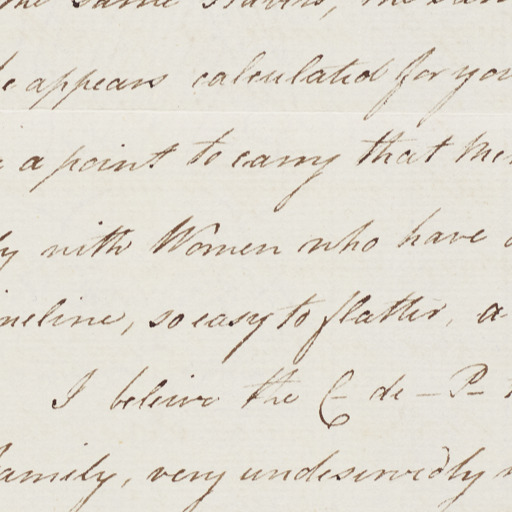 the same
appears calculated for you
a point to carry that
with Women who have
so easy to flatter, a
I beleive the C- de - P-
family, very undeservedly